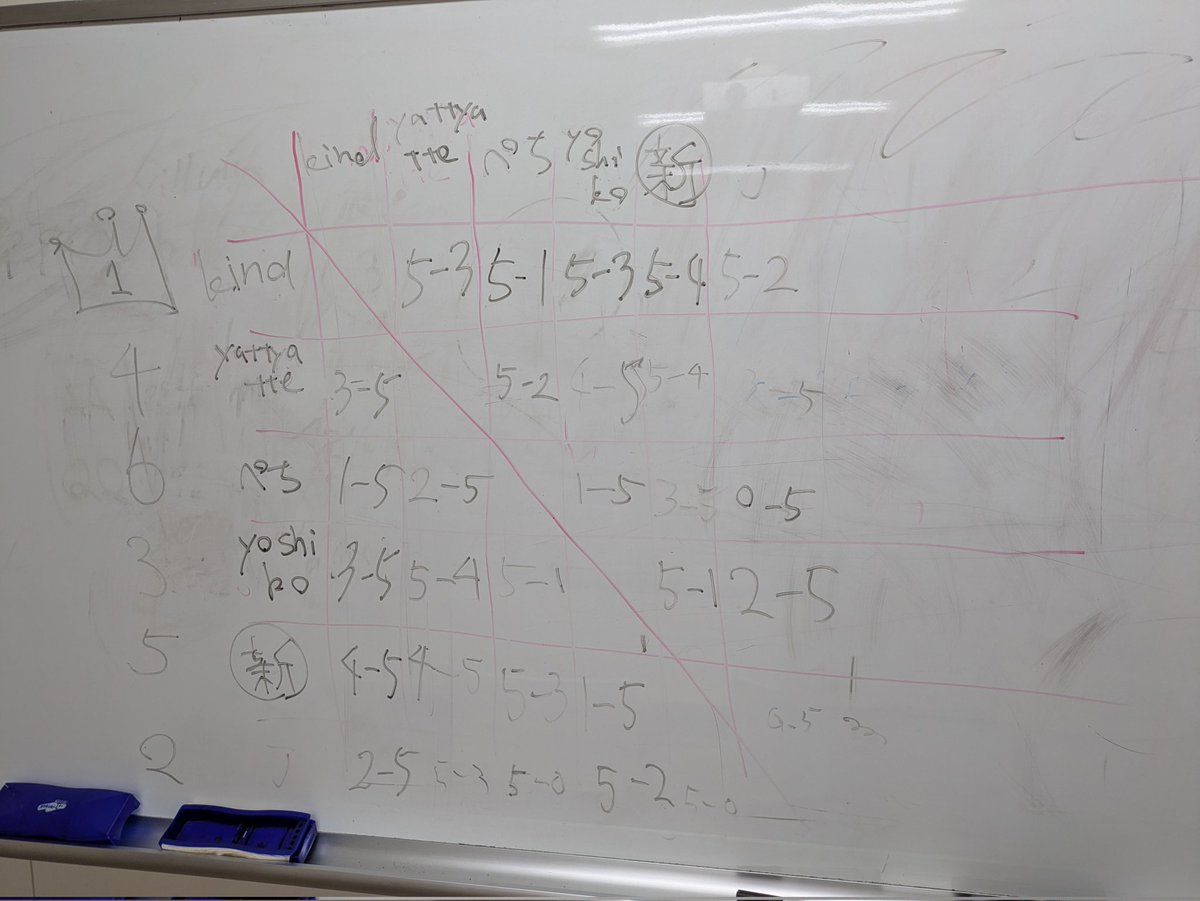 kind yattya tte ぺち yo shi ko 新 J
1 kind 5-3 5-1 5-3 5-4 5-2
4 yattya tte 3-5 5-2 4-5 5-4 3-5
6 ぺち 1-5 2-5 1-5 3-5 0-5
3 yoshi ko 3-5 5-4 5-1 5-1 2-5
5 新 4-5 4-5 5-3 1-5 0-5
2 J 2-5 5-3 5-0 5-2 5-0